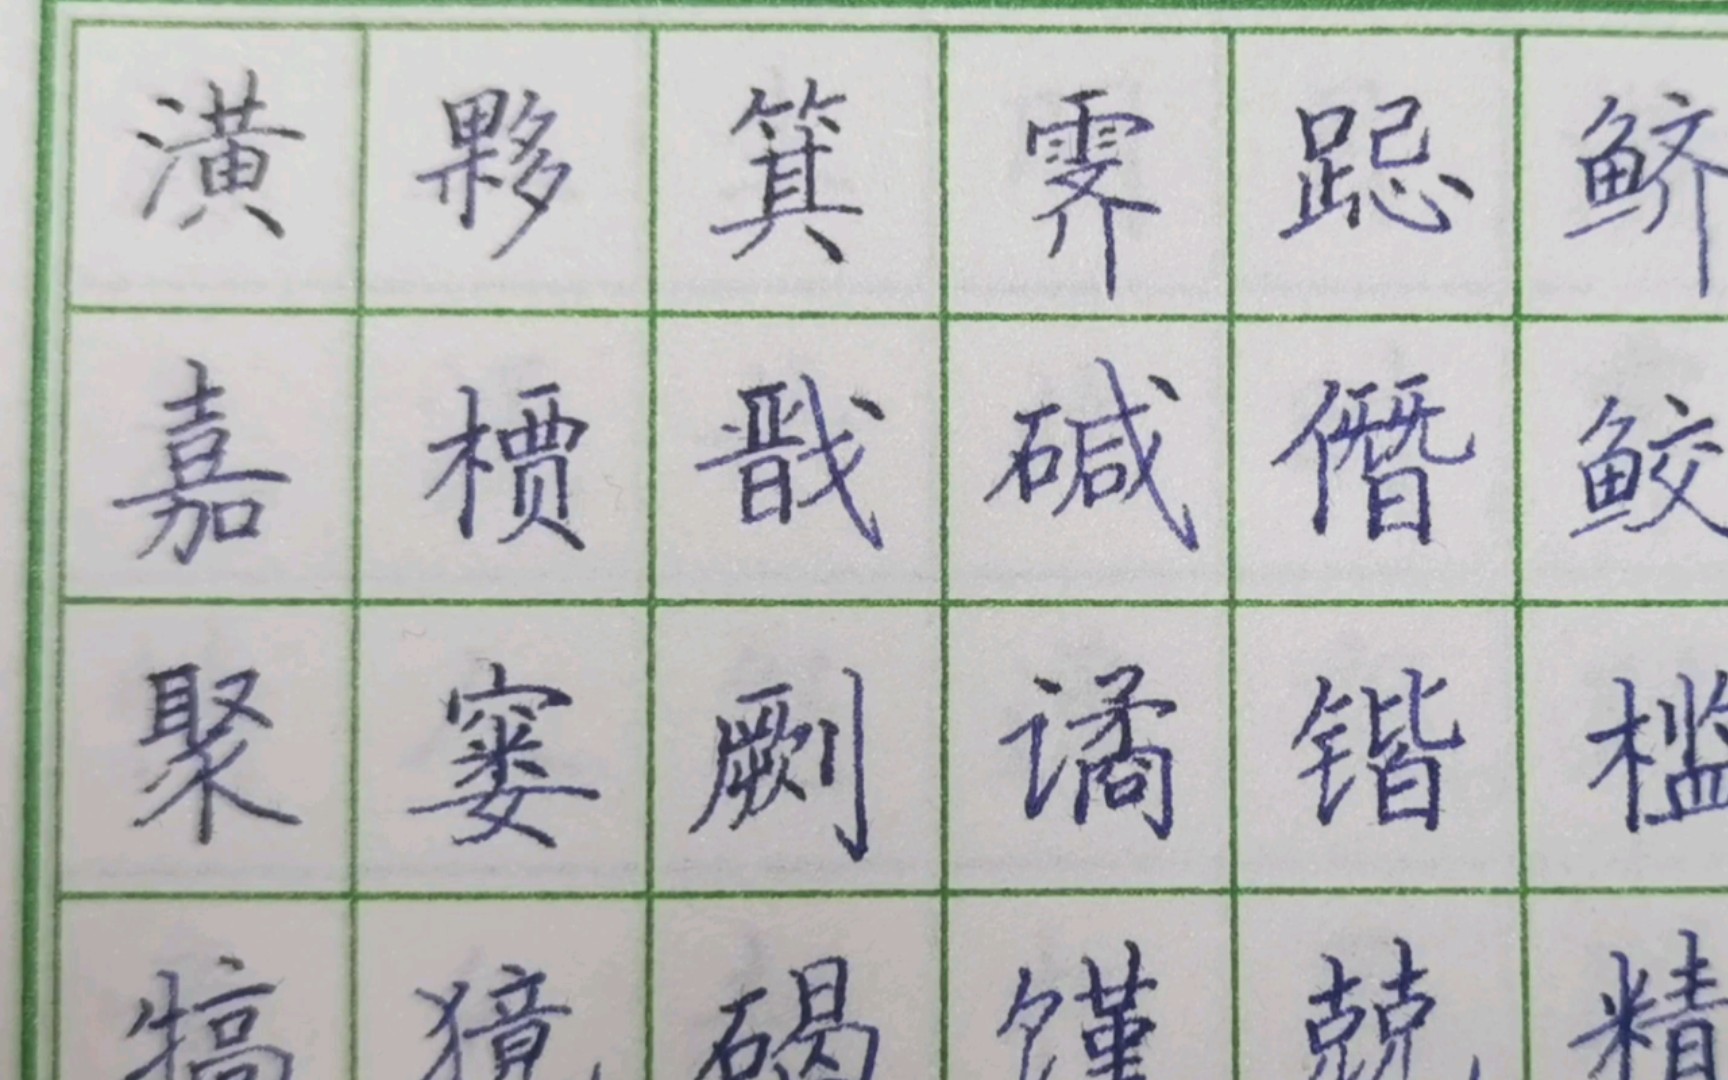 潢夥箕霁跽鲚
嘉槚戬碱僭鲛
聚窭劂谲锴槛
犒獍碣馑兢精